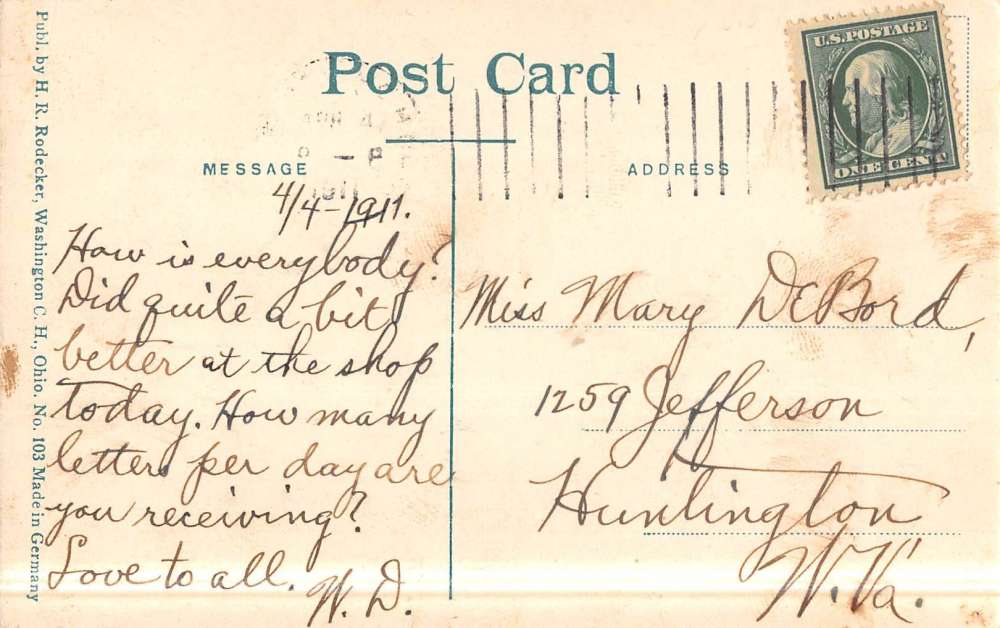 Post Card
U.S. POSTAGE
ONE CENT
MESSAGE
ADDRESS
4/4-1911.
How is everybody?
Did quite a bit
better at the shop
today. How many
letters per day are
you receiving?
Love to all.
W. D.
Miss Mary DeBord,
1259 Jefferson
Huntington
W. Va.
Publ. by H. R. Rodecker, Washington C. H., Ohio. No. 103 Made in Germany